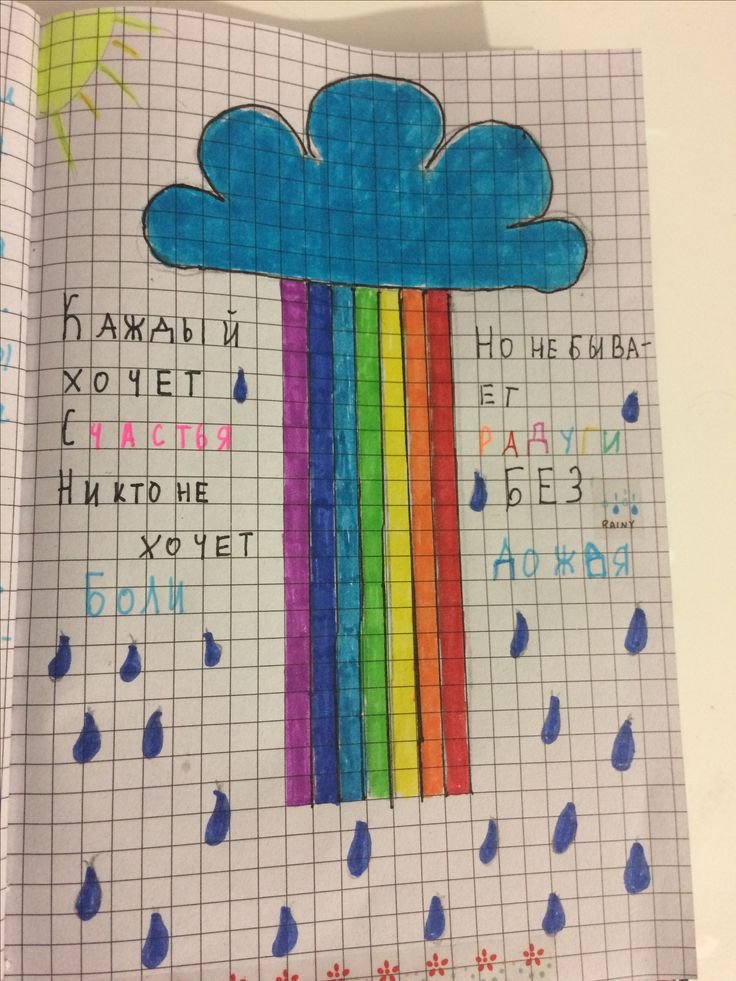 Каждый
хочет
Счастья
Никто не
хочет
Боли
Но не быва-
ет
радуги
без
RAINY
дождя